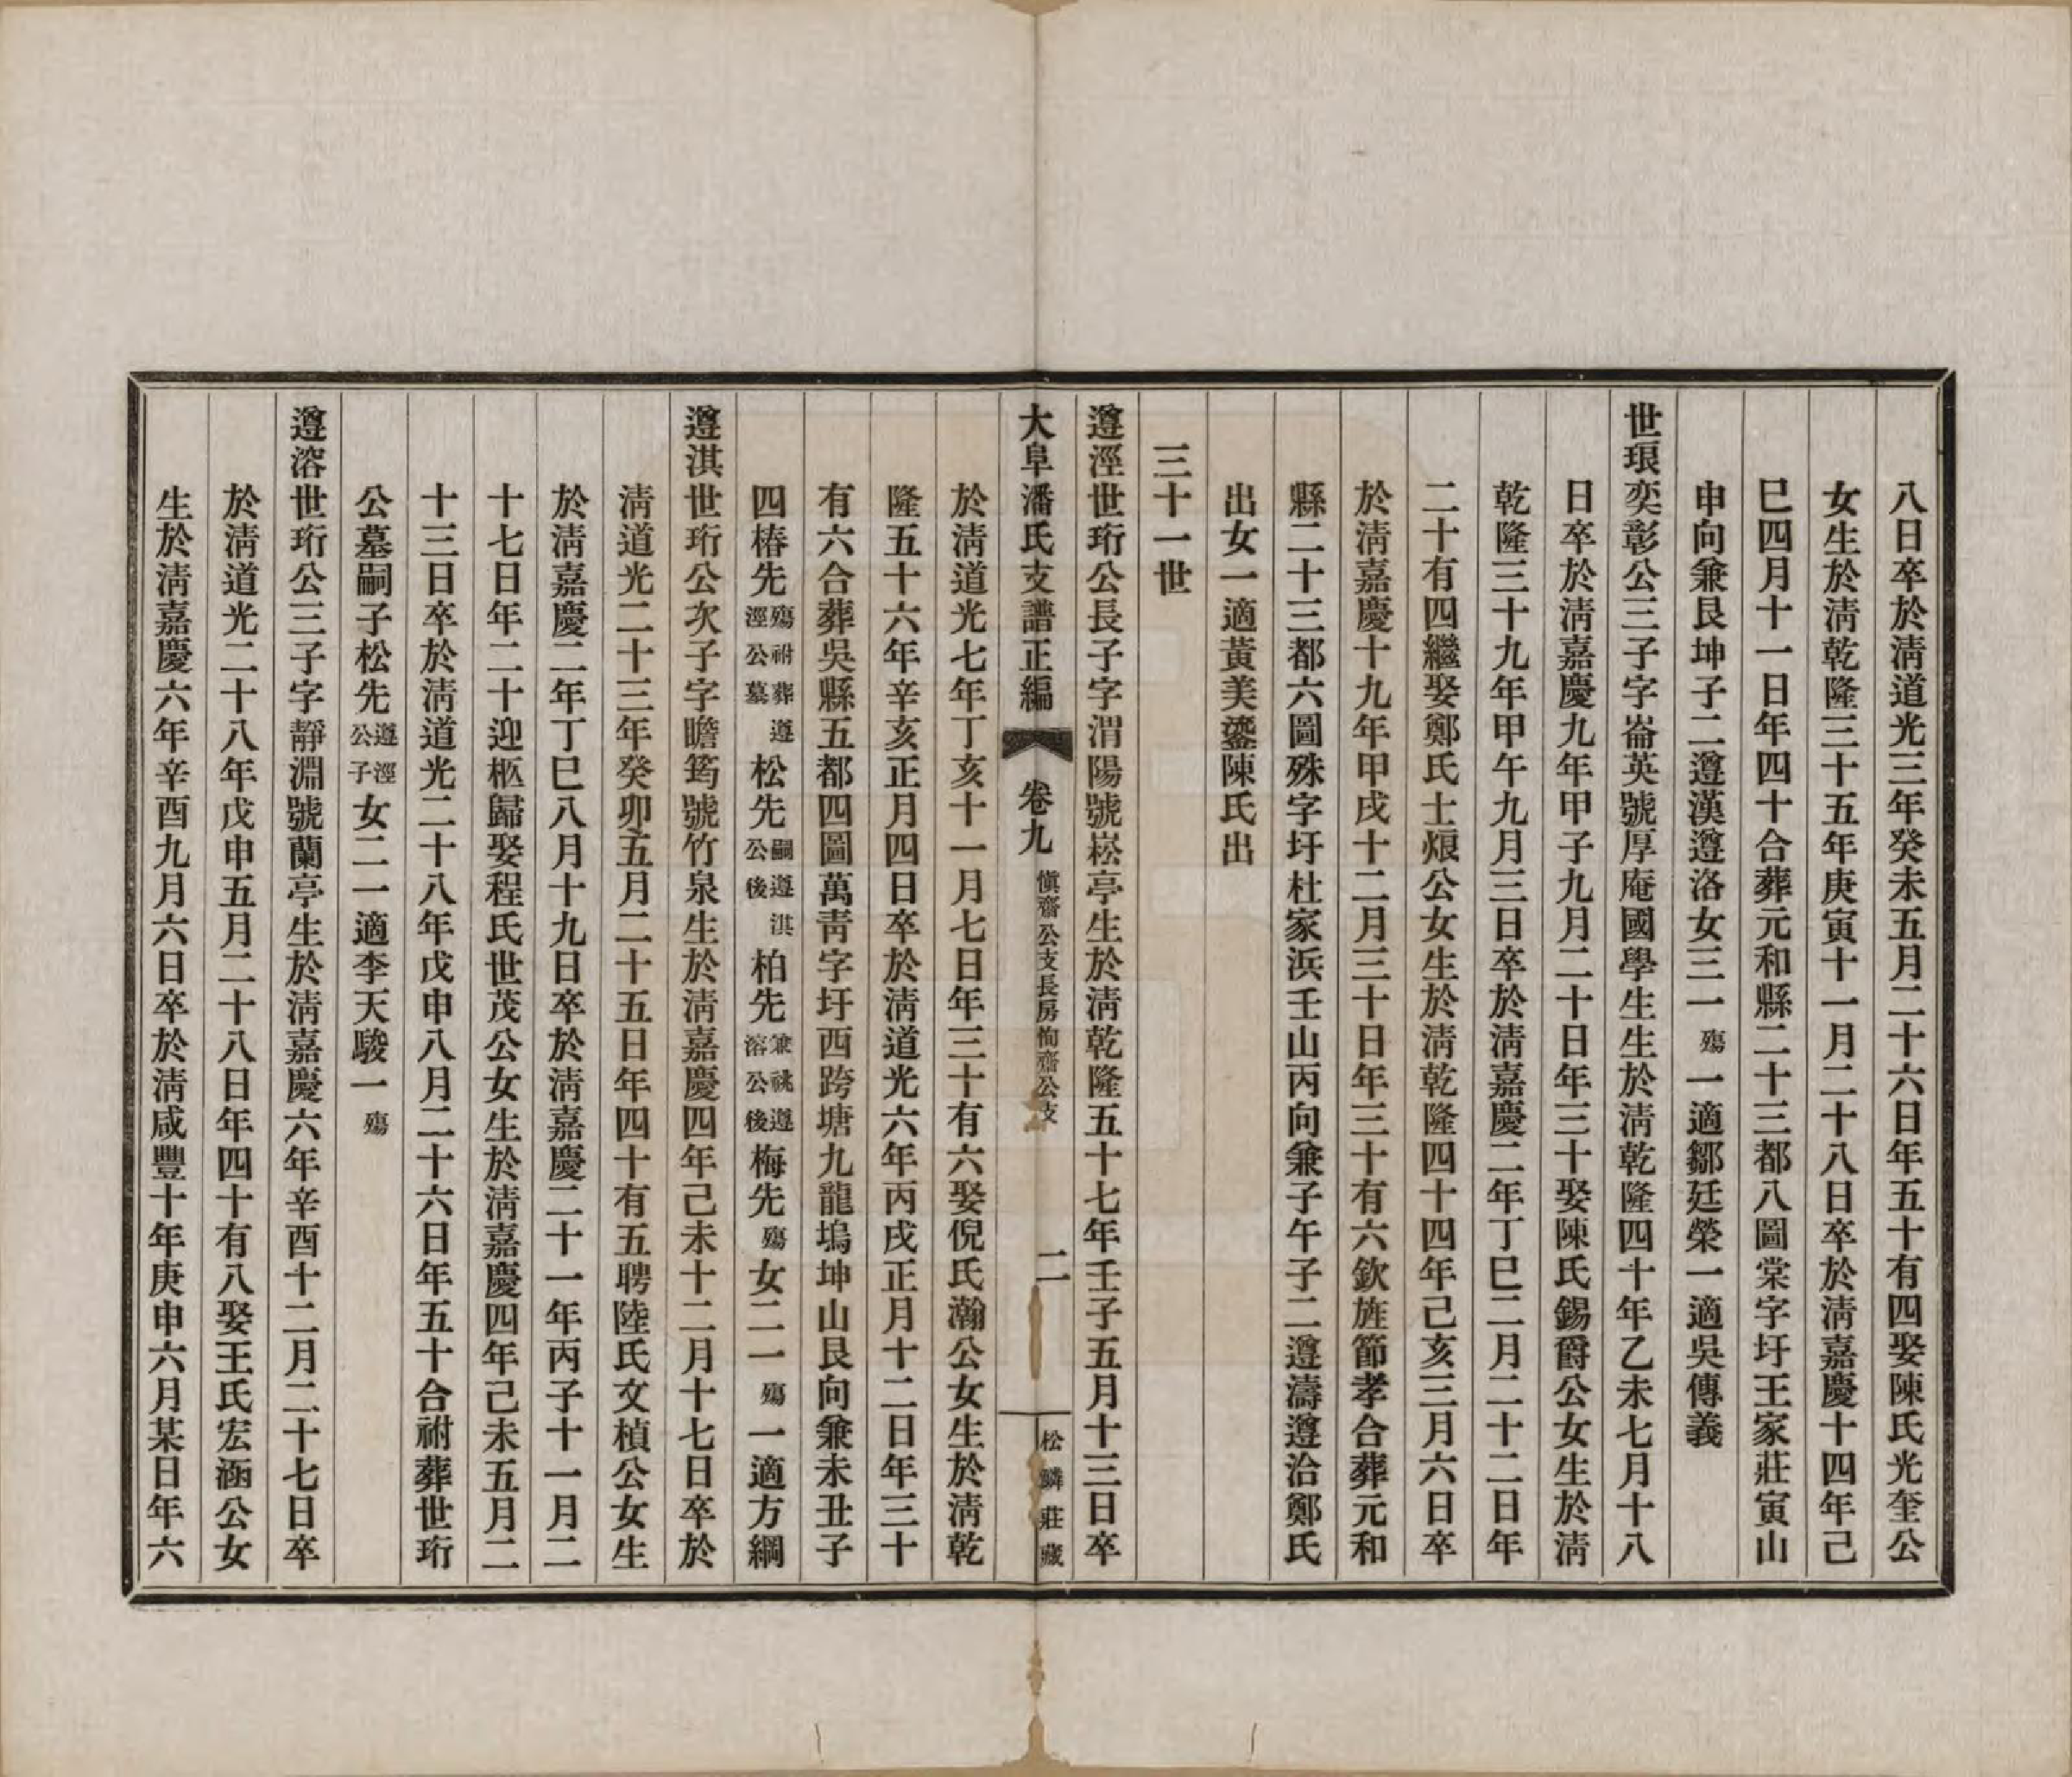 八日卒於清道光三年癸未五月二十六日年五十有四娶陳氏光奎公
女生於清乾隆三十五年庚寅十一月二十八日卒於清嘉慶十四年己
巳四月十一日年四十合葬元和縣二十三都八圖棠字圩王家莊寅山
申向兼艮坤子二遵漢遵洛女三一殤一適鄒廷榮一適吳傳義
世琅奕彰公三子字崙英號厚庵國學生生於清乾隆四十年乙未七月十八
日卒於清嘉慶九年甲子九月二十日年三十娶陳氏錫爵公女生於清
乾隆三十九年甲午九月三日卒於清嘉慶二年丁巳二月二十二日年
二十有四繼娶鄭氏士烺公女生於清乾隆四十四年己亥三月六日卒
於清嘉慶十九年甲戌十二月三十日年三十有六欽旌節孝合葬元和
縣二十三都六圖殊字圩杜家浜壬山丙向兼子午子二遵濤遵治鄭氏
出女一適黃美鎏陳氏出
三十一世
遵涇世珩公長子字渭陽號崧亭生於清乾隆五十七年壬子五月十三日卒
大阜潘氏支譜正編 卷九 愼齋公支長房恂齋公支 二 松鱗莊藏
於清道光七年丁亥十一月七日年三十有六娶倪氏瀚公女生於清乾
隆五十六年辛亥正月四日卒於清道光六年丙戌正月十二日年三十
有六合葬吳縣五都四圖萬靑字圩西跨塘九龍塢坤山艮向兼未丑子
四椿先殤祔葬遵涇公墓松先嗣遵淇公後柏先兼祧遵溶公後梅先殤女二一殤一適方綱
遵淇世珩公次子字瞻筠號竹泉生於清嘉慶四年己未十二月十七日卒於
清道光二十三年癸卯五月二十五日年四十有五聘陸氏文楨公女生
於清嘉慶二年丁巳八月十九日卒於清嘉慶二十一年丙子十一月二
十七日年二十迎柩歸娶程氏世茂公女生於清嘉慶四年己未五月二
十三日卒於清道光二十八年戊申八月二十六日年五十合祔葬世珩
公墓嗣子松先遵涇公子女二一適李天駿一殤
遵溶世珩公三子字靜淵號蘭亭生於清嘉慶六年辛酉十二月二十七日卒
於清道光二十八年戊申五月二十八日年四十有八娶王氏宏涵公女
生於清嘉慶六年辛酉九月六日卒於清咸豐十年庚申六月某日年六